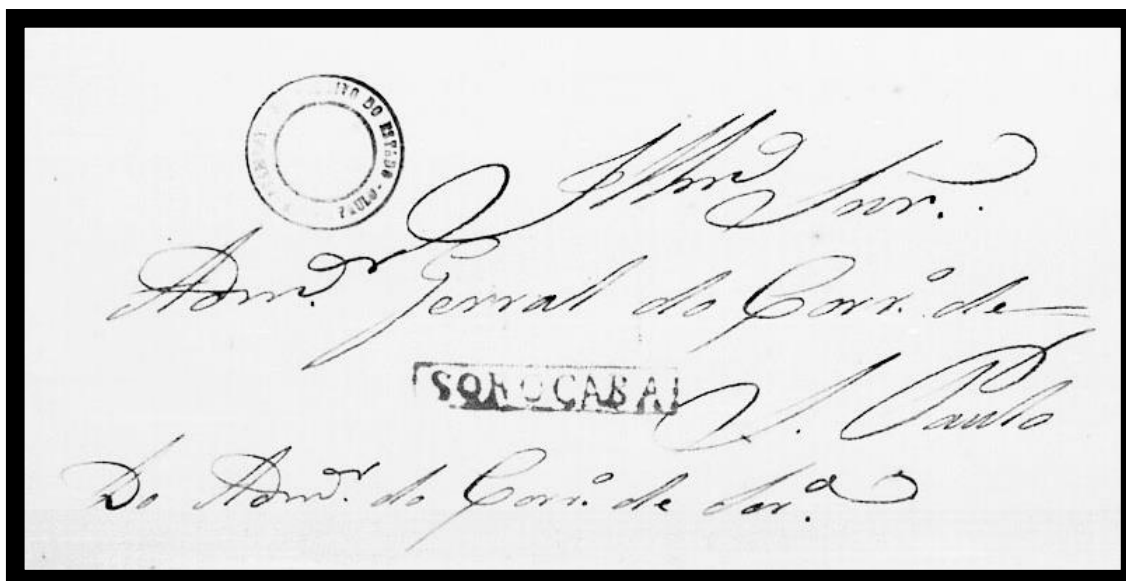 DO ESTADO
Illmo Snr.
Admor Gerral do Corro de
SOROCABA
S. Paulo
Do Admor. do Corro de Sora